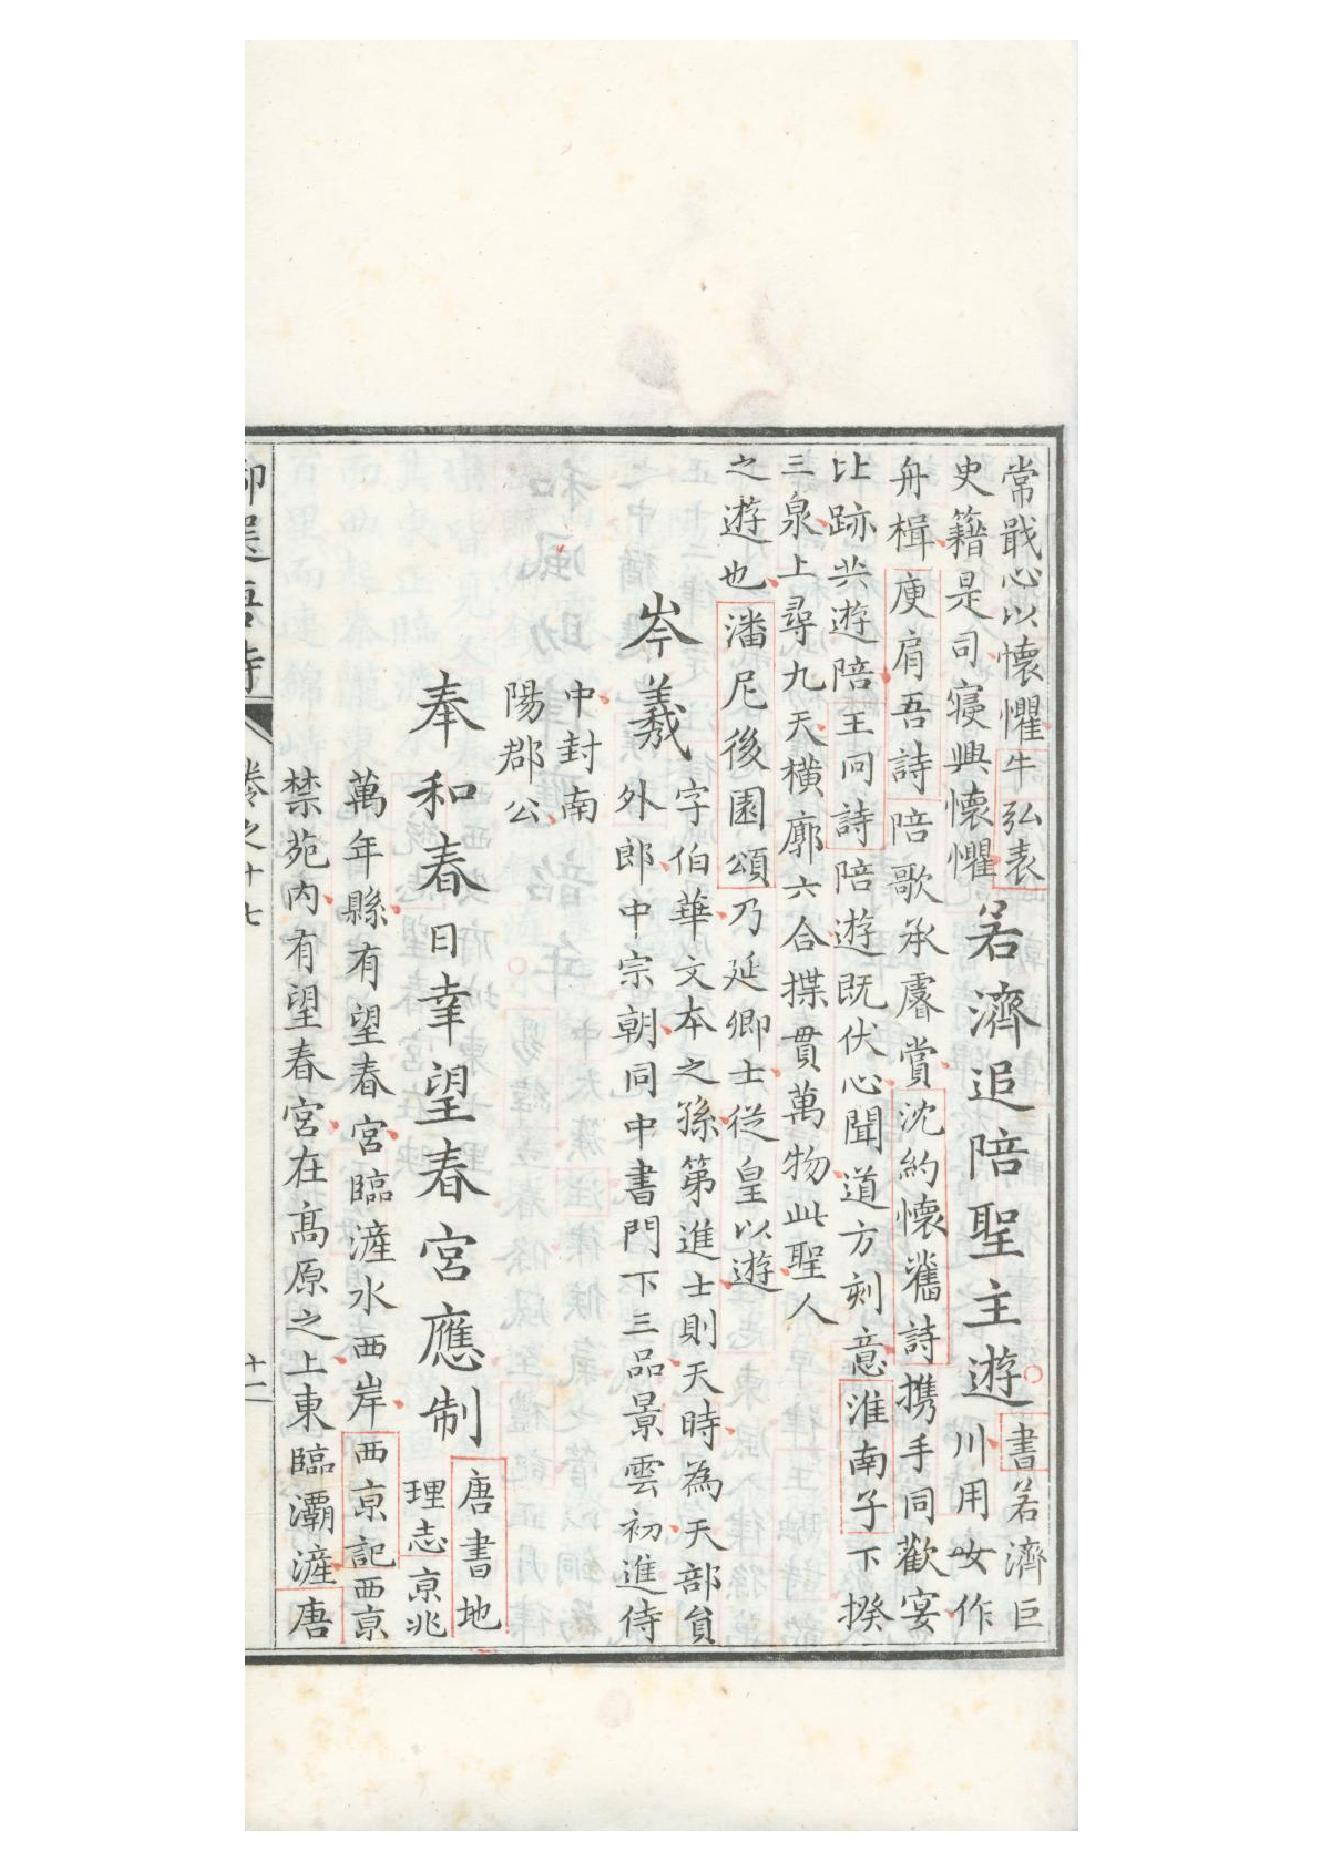 常戢心以懷懼牛弘表
史籍是司寝興懷懼
若濟追陪聖主遊
書若濟巨
川用女作
舟楫庾肩吾詩陪歌承睿賞沈約懷舊詩携手同歡宴
比跡共遊陪王冋詩陪遊既伏心聞道方刻意淮南子下揆
三泉上尋九天橫廓六合揲貫萬物此聖人
之遊也潘尼後園頌乃延卿士從皇以遊
岑羲
字伯華文本之孫第進士則天時為天部員
外郎中宗朝同中書門下三品景雲初進侍
中封南
陽郡公
奉和春日幸望春宮應制
唐書地
理志京兆
萬年縣有望春宮臨滻水西岸西京記西京
禁苑内有望春宮在高原之上東臨灞滻唐
御選唐詩 卷之十七 十一